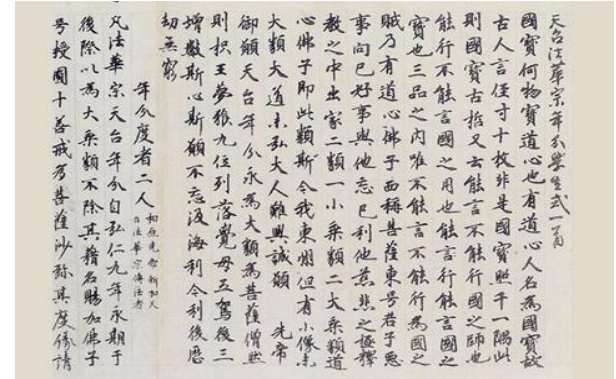 天台法華宗年分學生式一首
國寶何物寶道心也有道心人名為國寶故
古人言徑寸十枚非是國寶照千一隅此
則國寶古哲又云能言不能行國之師也
能行不能言國之用也能行能言國之
寶也三品之內唯不能言不能行為國之
賊乃有道心佛子西稱菩薩東号君子惡
事向己好事與他忘己利他慈悲之極釋
教之中出家二類一小乘類二大乘類道
心佛子即此類斯今我東州但有小像未
大類大道未弘大人難興誠願 先帝
御願天台年分永為大類為菩薩僧然
則枳王夢猴九位列落覺母五駕後三
增數斯心斯願不忘汲海利今利後歷
劫無窮
年分度者二人 柏原先帝新加天
台法華宗傳法者
凡法華宗天台年分自弘仁九年永期于
後際以為大乘類不除其籍名賜加佛子
号授圓十善戒為菩薩沙弥其度縁請